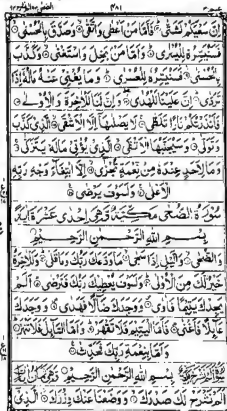 اِنَّ سَعْيَكُمْ لَشَتّٰى ۞ فَاَمَّا مَنْ اَعْطٰى وَاتَّقٰى ۞ وَصَدَّقَ بِالْحُسْنٰى ۞
فَسَنُيَسِّرُهٗ لِلْيُسْرٰى ۞ وَاَمَّا مَنْۢ بَخِلَ وَاسْتَغْنٰى ۞ وَكَذَّبَ
بِالْحُسْنٰى ۞ فَسَنُيَسِّرُهٗ لِلْعُسْرٰى ۞ وَمَا يُغْنِيْ عَنْهُ مَالُهٗٓ اِذَا
تَرَدّٰى ۞ اِنَّ عَلَيْنَا لَلْهُدٰى ۞ وَاِنَّ لَنَا لَلْاٰخِرَةَ وَالْاُوْلٰى ۞
فَاَنْذَرْتُكُمْ نَارًا تَلَظّٰى ۞ لَا يَصْلٰىهَآ اِلَّا الْاَشْقَى ۞ الَّذِيْ كَذَّبَ
وَتَوَلّٰى ۞ وَسَيُجَنَّبُهَا الْاَتْقَى ۞ الَّذِيْ يُؤْتِيْ مَالَهٗ يَتَزَكّٰى ۞
وَمَا لِاَحَدٍ عِنْدَهٗ مِنْ نِّعْمَةٍ تُجْزٰٓى ۞ اِلَّا ابْتِغَآءَ وَجْهِ رَبِّهِ
الْاَعْلٰى ۞ وَلَسَوْفَ يَرْضٰى ۞
سُوْرَةُ الضُّحٰى مَكِّيَّةٌ وَّهِيَ اِحْدٰى عَشْرَةَ اٰيَةً
بِسْمِ اللّٰهِ الرَّحْمٰنِ الرَّحِيْمِ
وَالضُّحٰى ۞ وَالَّيْلِ اِذَا سَجٰى ۞ مَا وَدَّعَكَ رَبُّكَ وَمَا قَلٰى ۞ وَلَلْاٰخِرَةُ
خَيْرٌ لَّكَ مِنَ الْاُوْلٰى ۞ وَلَسَوْفَ يُعْطِيْكَ رَبُّكَ فَتَرْضٰى ۞ اَلَمْ
يَجِدْكَ يَتِيْمًا فَاٰوٰى ۞ وَوَجَدَكَ ضَآلًّا فَهَدٰى ۞ وَوَجَدَكَ
عَآئِلًا فَاَغْنٰى ۞ فَاَمَّا الْيَتِيْمَ فَلَا تَقْهَرْ ۞ وَاَمَّا السَّآئِلَ فَلَا تَنْهَرْ ۞
وَاَمَّا بِنِعْمَةِ رَبِّكَ فَحَدِّثْ ۞
بِسْمِ اللّٰهِ الرَّحْمٰنِ الرَّحِيْمِ
اَلَمْ نَشْرَحْ لَكَ صَدْرَكَ ۞ وَوَضَعْنَا عَنْكَ وِزْرَكَ ۞ الَّذِيْٓ